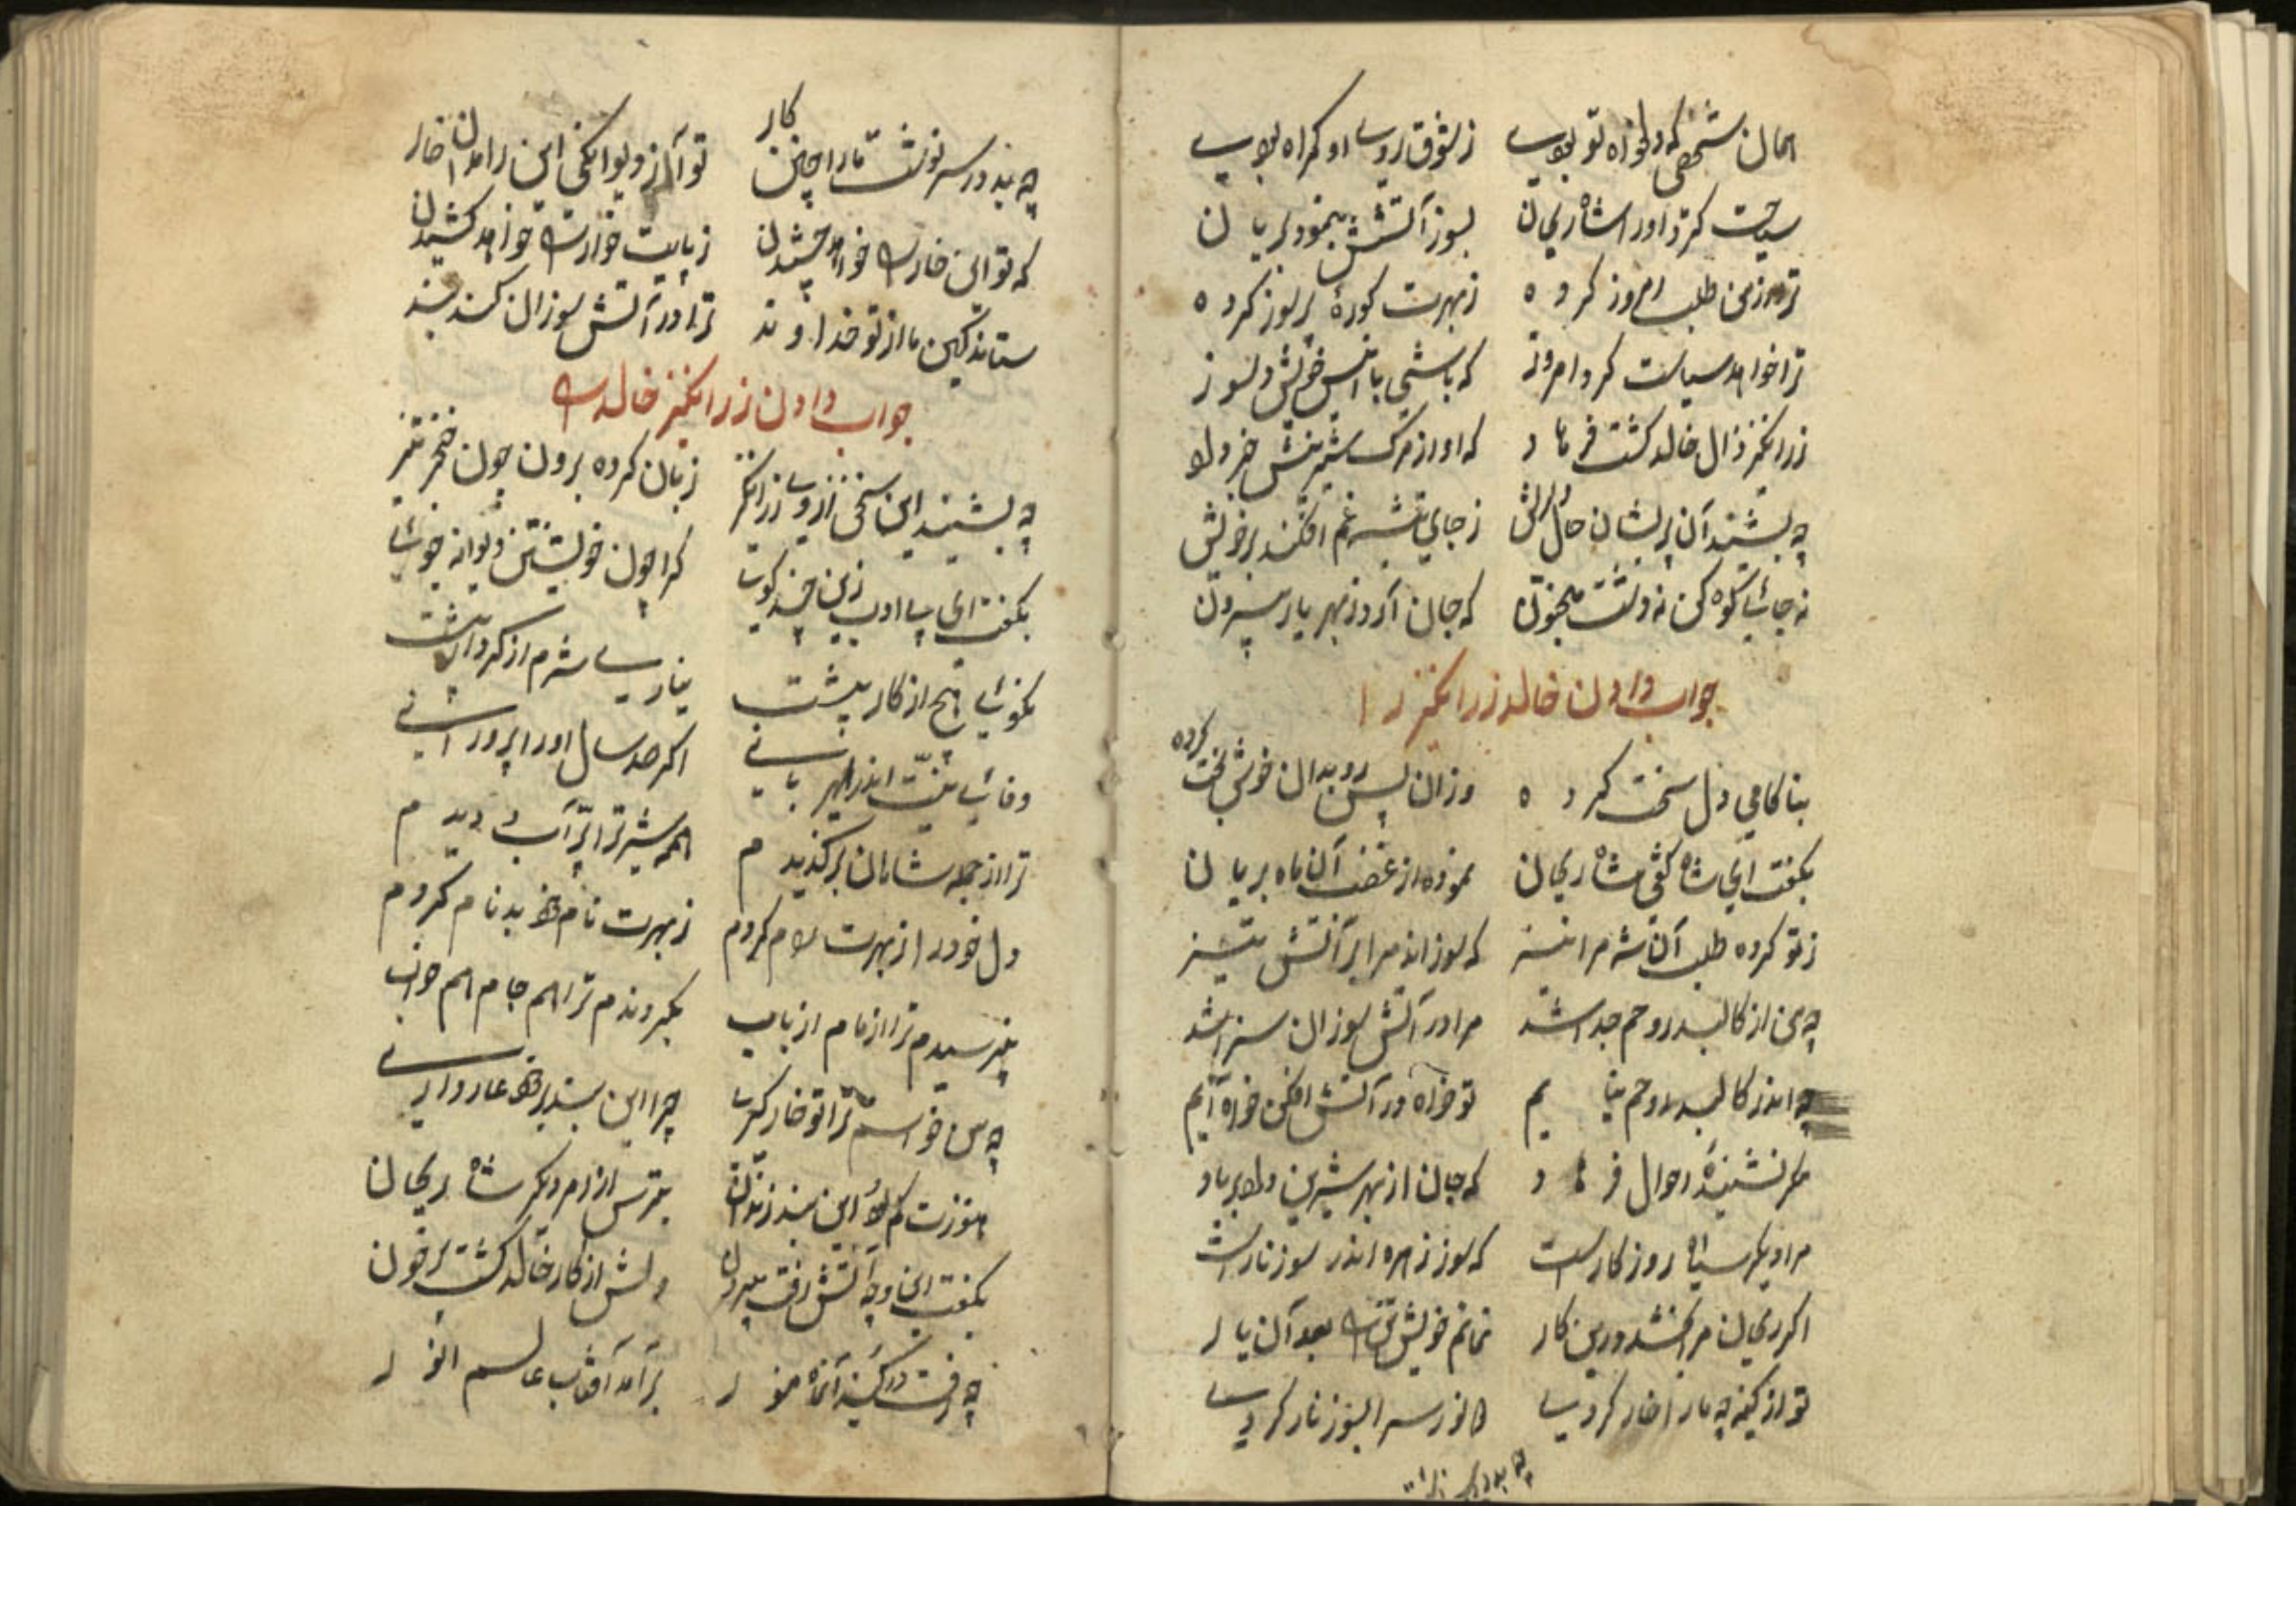 همان شخصی که دلخواه تو بودی ز شوق روی او کمراه بودی
سیاست کرد او را شاه ریحان بسوز آتشش بنمود بریان
ترا از من طلب امروز کرده ز مهرت کوره پر سوز کرده
ترا خواهد سیاست کرد امروز که باشی با خویش دلسوز
زرانکیز زال خالد کشت فرهاد که او از مرک شیرینش خبر داد
چه بشنید آن پریشان حال ز جای تیشه غم افکند بر خویش
نه جای کوه کن نه دشت مجنون که جان آرد ز مهر یار بیرون
جواب دادن خالد زرانکیز را
بناکامی دل سخت کرده وزان پس رو بدان خوش بخت کرده
بکفت ای شاه کفی شاه ریحان نموده از غضب آن ماه بریان
ز تو کرده طلب آن شه مرا نیز که سوزاند مرا بر آتش تیز
چه من از کالبد روحم جدا شد مرا در آتش سوزان سزا شد
چه اندر کالبد روحم نیایم تو خواه در آتش افکن خواه آیم
مکر نشنیده احوال فرهاد که جان از بهر شیرین داد بر باد
مرا دیکر سیاه روزکارست که سوز زهره اندر سوز نارست
اکر ریحان مرا بخشد درین کار نمانم خویش را بعد آن یار
تو از کینه چه مارا خار کردی هم از سر بسوز نار کردی
چه بد در سرنوشت مارا چنین کار تو آن از دیوانکی این را مدان خار
که تو این خاری خواهد چشیدن ز پایت خواری خواهد کشیدن
ستاند کین ما از تو خداوند ترا در آتش سوزان کند بند
جواب دادن زرانکیز خالد را
چه بشنید این سخن از وی زرانکیز زبان کرده برون چون خنجر تیز
بکفت ای بی ادب زین چند کوی که را چون خویشتن دیوانه جوی
نکوئی هیچ از کار پیشت نیاری شرم از کردار پشت
وفائی نیست اندر مهربانی اکر صد سال او را پرورانی
ترا از جمله شاهان برکزیدم همه شیر ترا پر آب دیدم
دل خود را ز بهرت رام کردم ز مهرت نام خود بدنام کردم
نپرسیدم ترا از نام از باب بکیروندم ترا هم جام هم خواب
چه من خواستم ترا تو خار کردی چرا این بند بر خود عار داری
هنوزت کم بود این بند زندان بترس از امر دیکر شاه ریحان
بکفت این و چه آتش رفت بیرون دلش از کار خالد کشت پر خون
چه رفت در کینه آن ماه منور برآمد آفتاب عالم انور